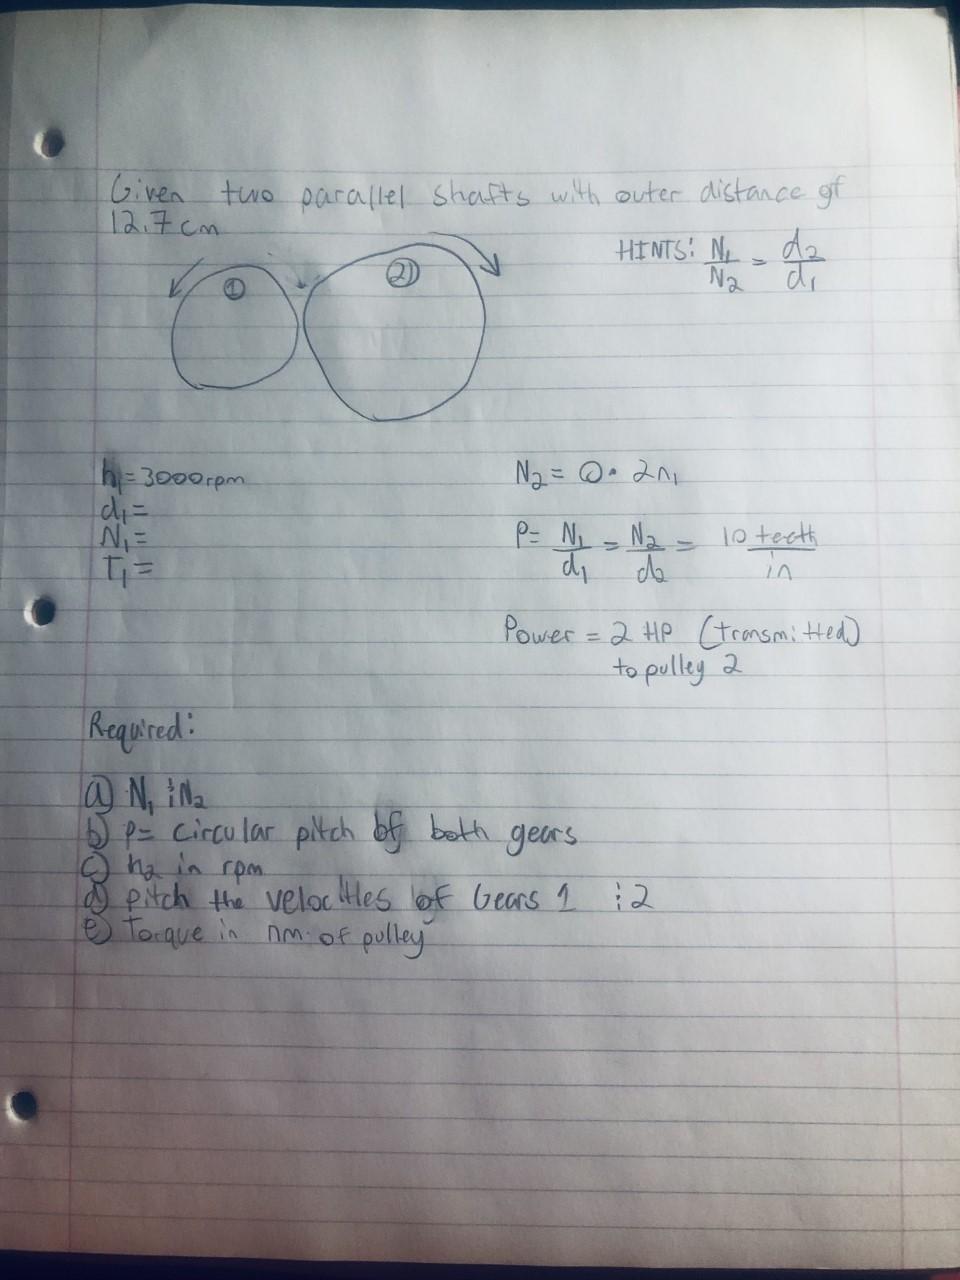 Given two parallel shafts with outer distance of
12.7 cm
HINTS: N₁/N₂ = d₂/d₁
① ②
n₁ = 3000rpm
d₁ =
N₁ =
T₁ =
N₂ = 0 · 2n₁
P = N₁/d₁ = N₂/d₂ = 10 teeth/in
Power = 2 HP (transmitted)
to pulley 2
Required:
a) N₁ ; N₂
b) P = circular pitch of both gears
c) n₂ in rpm
d) pitch the velocities of Gears 1 ; 2
e) Torque in nm. of pulley